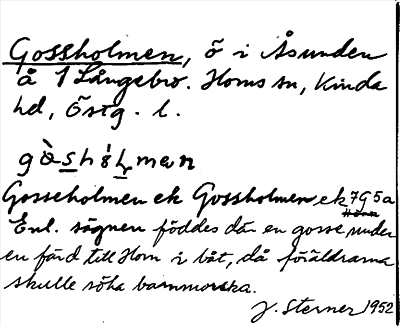 Gossholmen, ö i Åsunden
å 1 Långebro. Horns sn, Kinda
hd, Östg. l.
gòshòlmen
Gosseholmen ek Gossholmen ek 7G5a
Enl. sägnen föddes där en gosse under
en färd till Horn i båt, då föräldrarna
skulle söka barnmorska.
J. Sterner 1952